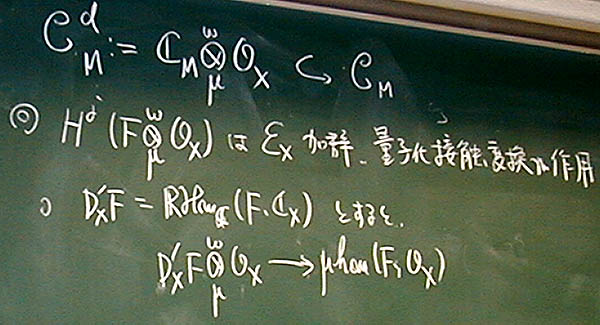 𝒞^d_M := ℂ_M ⊗^w_μ 𝒪_X ↪ 𝒞_M
◎ H^j(F ⊗^w_μ 𝒪_X) は ℰ_X 加群、量子化接触変換が作用
D'_X F = RHom_ℂ(F, ℂ_X) とすると、
D'_X F ⊗^w_μ 𝒪_X → μhom(F, 𝒪_X)